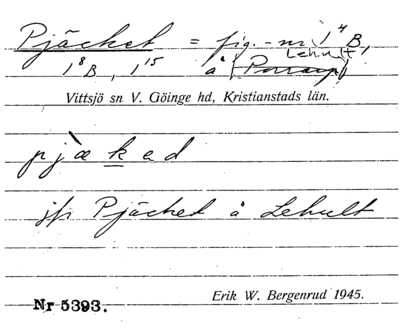 Pjäcket = fig.-nr 1⁴B,
1⁸B, 1¹⁵ å Lehult
Vittsjö sn V. Göinge hd, Kristianstads län.
pjækad
jfr Pjäcket å Lehult
Erik W. Bergenrud 1945.
Nr 5393.